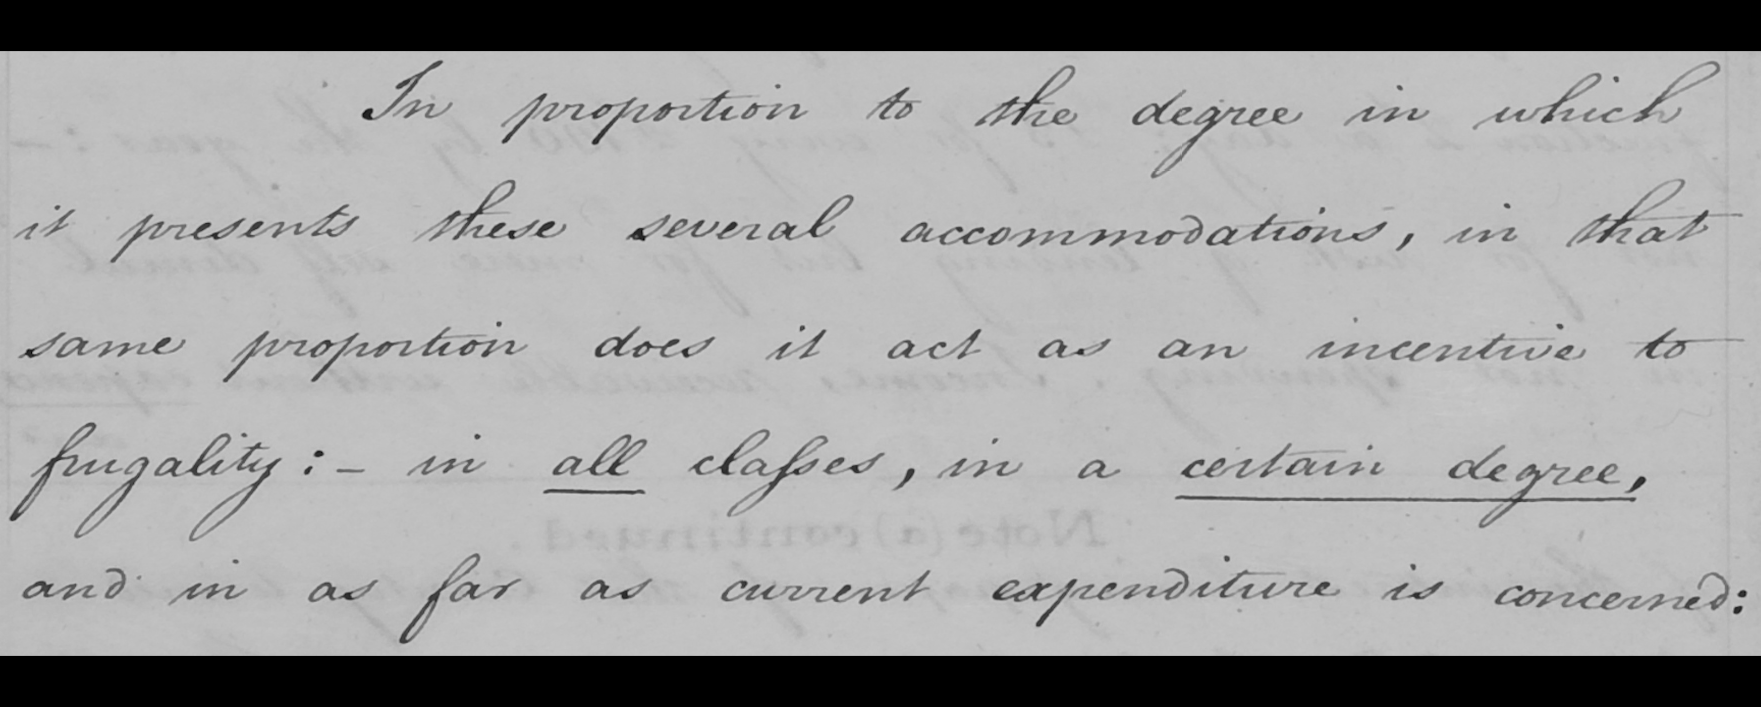 In proportion to the degree in which
it presents these several accommodations, in that
same proportion does it act as an incentive to
frugality :– in all claſses, in a certain degree,
and in as far as current expenditure is concerned: